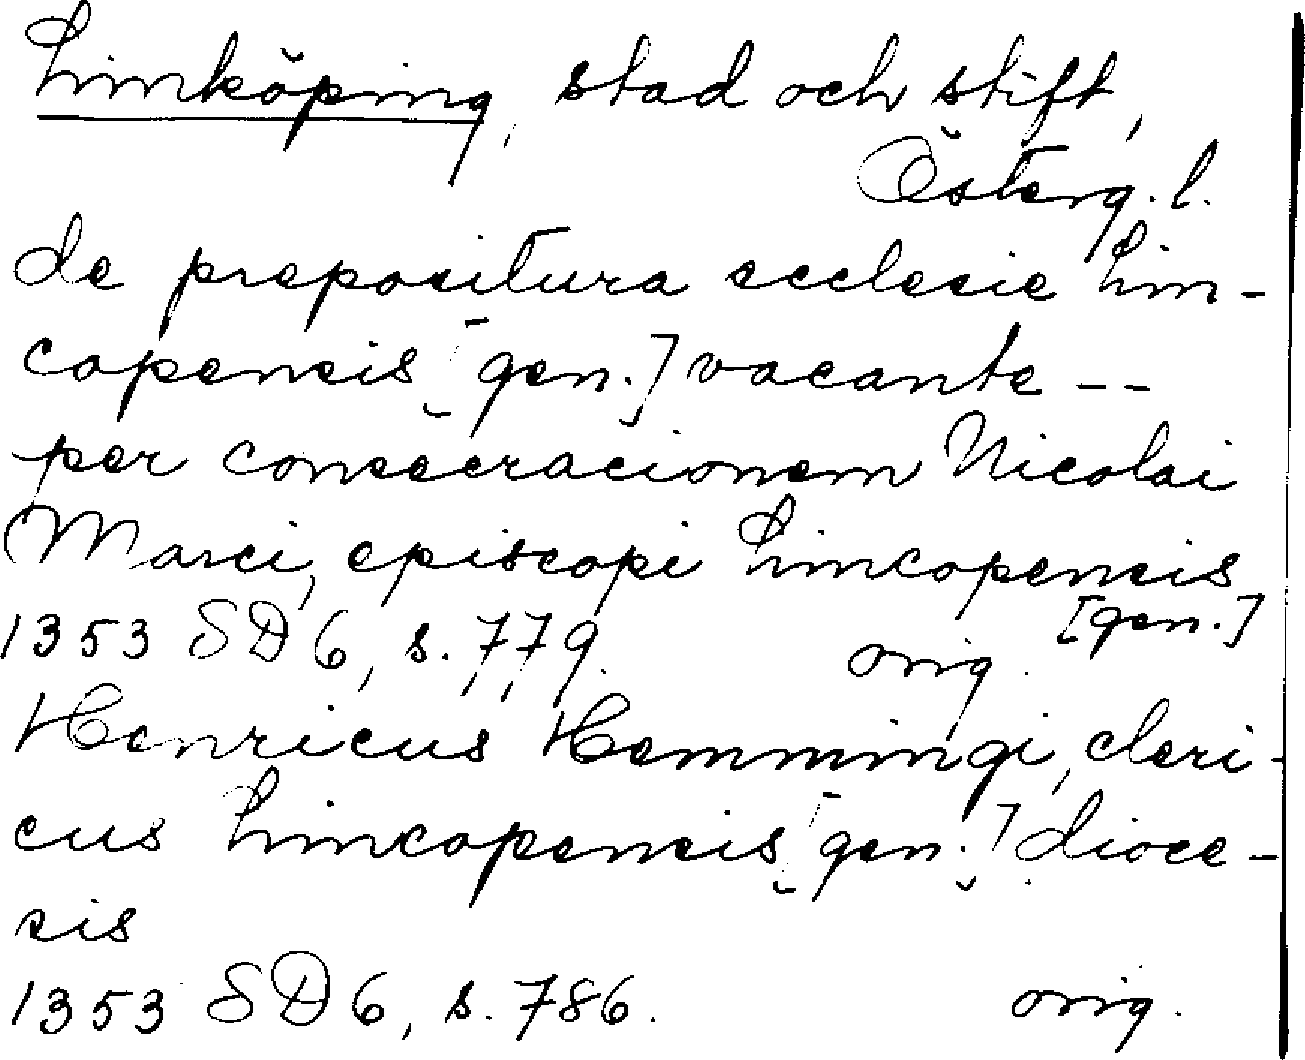 Linköping, stad och stift,
Österg.l.
de prepositura ecclesie Lin-
copensis [gen.] vacante --
per consecracionem Nicolai
Marci, episcopi Lincopensis
[gen.]
1353 SD 6, s. 779. orig.
Henricus Hemmingi, cleri-
cus Lincopensis [gen.] dioce-
sis
1353 SD 6, s. 786. orig.